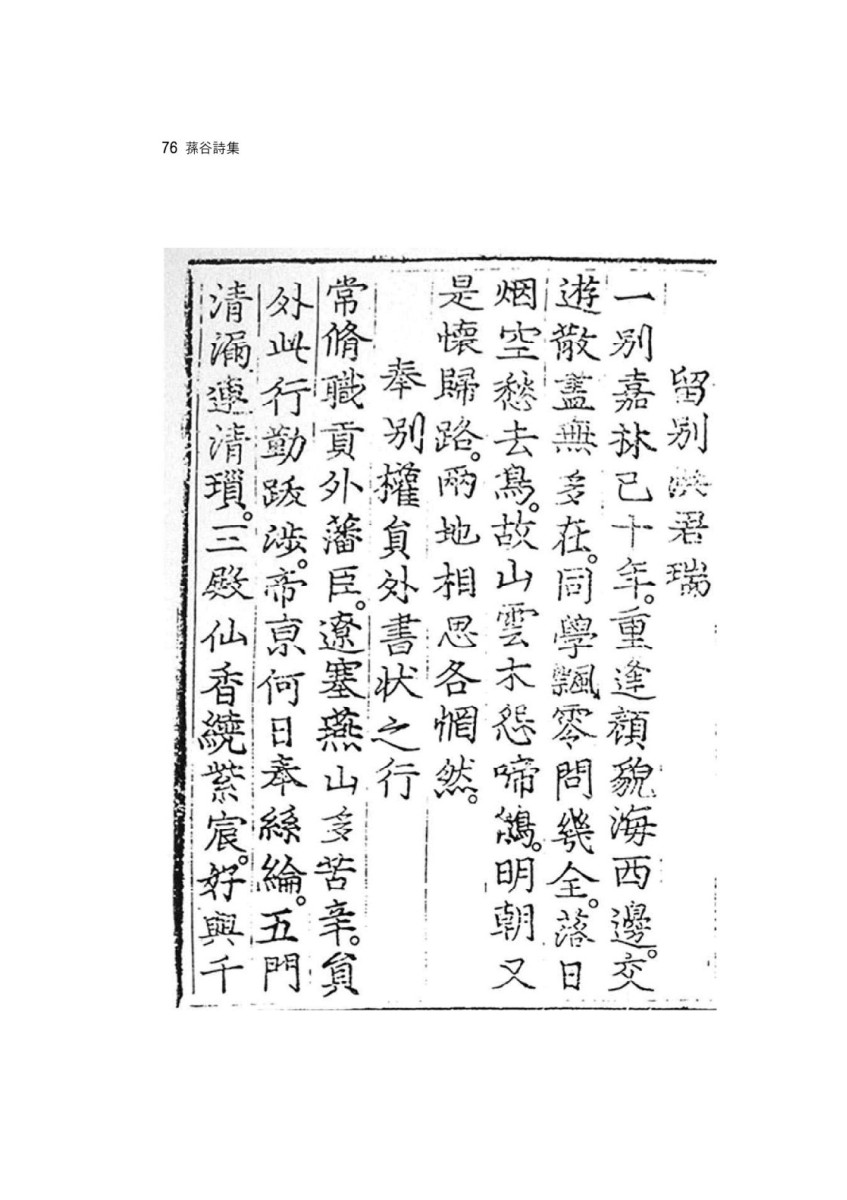 76 蓀谷詩集
留別洪君瑞
一別嘉林已十年。重逢顏貌海西邊。交
遊散盡無多在。同學飄零問幾全。落日
烟空愁去鳥。故山雲木怨啼鵑。明朝又
是懷歸路。兩地相思各惘然。
奉別權員外書狀之行
常脩職貢外藩臣。遼塞燕山多苦辛。員
外此行勤跋涉。帝京何日奉絲綸。五門
清漏連清瑣。三殿仙香繞紫宸。好與千